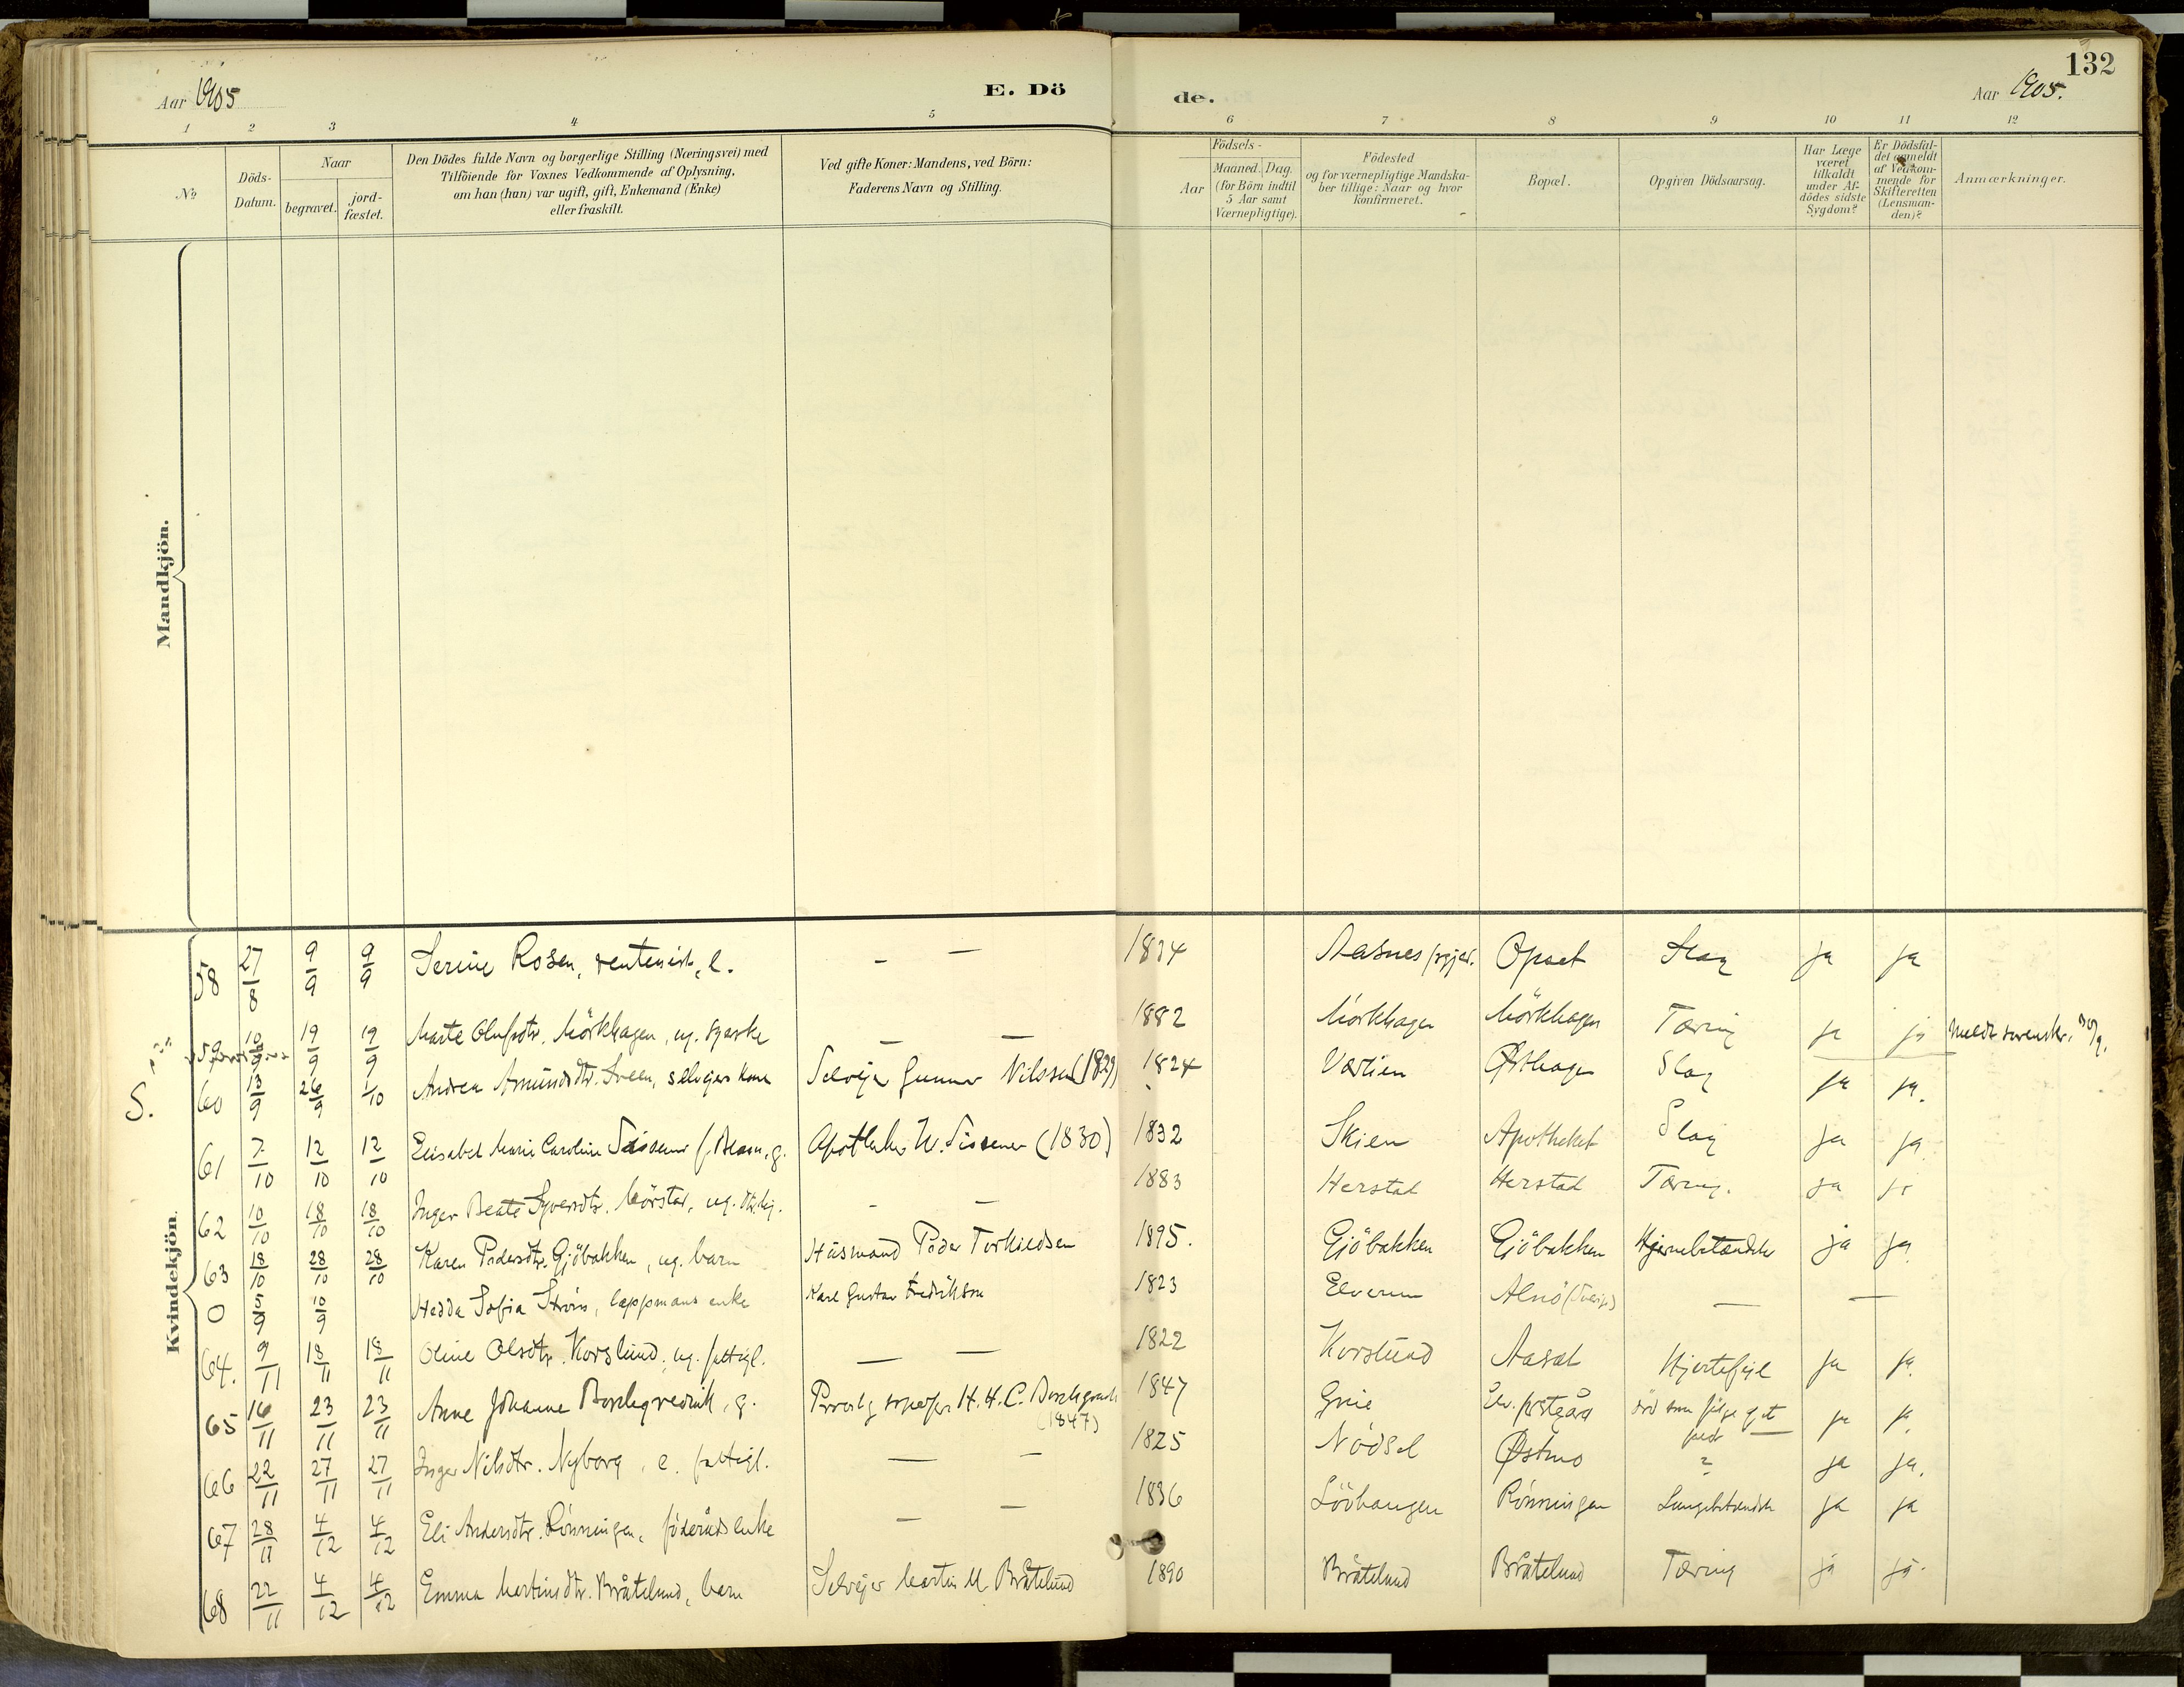 132
Aar 1905
E. Dö
de.
Aar 1905.
1 2 3 4 5 6 7 8 9 10 11 12
No
Döds-
Datum.
Naar
begravet.
jord-
fæstet.
Den Dödes fulde Navn og borgerlige Stilling (Næringsvei) med
Tilföiende for Voxnes Vedkommende af Oplysning,
om han (hun) var ugift, gift, Enkemand (Enke)
eller fraskilt.
Ved gifte Koner: Mandens, ved Börn:
Faderens Navn og Stilling.
Födsels-
Aar
Maaned. Dag.
(for Börn indtil
5 Aar samt
Værnepligtige).
Födested
og for værnepligtige Mandska-
ber tillige: Naar og hvor
konfirmeret.
Bopæl.
Opgiven Dödsaarsag.
Har Læge
været
tilkaldt
under Af-
dödes sidste
Sygdom?
Er Dödsfal-
det anmeldt
af Vedkom-
mende for
Skifteretten
(Lensman-
den)?
Anmærkninger.
Mandkjön.
Kvindekjön.
58 27/8 9/9 9/9 Serine Rosen, rentenist, e. – – 1834 Aasnes Opset Slag ja ja
59 10/9 19/9 19/9 Marte Olufsdtr. Mörkhagen, ug. – – 1882 Mörkhagen Mörkhagen Tæring ja ja
S. 60 13/9 26/9 1/10 Andrea Amundsdtr. Sveen, selveiers kone Selvejer Gunner Nilssen (1829) 1824 Værlien Østhagen Slag ja ja.
61 7/10 12/10 12/10 Elisabet Marie Caroline Sissener f. g. Apotheker W. Sissener (1830) 1832 Skien Apotheket Slag ja ja
62 10/10 18/10 18/10 Inger Beate Syversdtr. ug. – – 1883 Herstad Herstad Tæring. ja ja
63 18/10 28/10 28/10 Karen Pedersdtr. Gjöbakken, ug. barn Husmand Peder Torkildsen 1895. Gjöbakken Gjöbakken Hjernebetændelse ja ja
0 5/9 10/9 Hedda Sofia Ström, lappmans enke Karl Gustav Fredrikson 1823 Elverum Alnö (Sverige) — —
64. 9/11 18/11 18/11 Oline Olsdtr. Korslund, ug. fattigl. — — 1822 Korslund Aasæt Hjertefejl ja ja.
65 16/11 23/11 23/11 Anne Johanne Borchgrevink, g. Provst g sogneprest H. H. C. Borchgrevink (1847) 1847 Grue Elv. prstgård död som fölge af et ja ja
66 22/11 27/11 27/11 Inger Nilsdtr. Nyborg, e. fattigl. — – 1825 Nödsel Østmo ? ja ja.
67 28/11 4/12 4/12 Eli Andersdtr. Rönningen, föderådsenke – – 1836 Lövhaugen Rönningen Lungebetændelse ja ja
68 22/11 4/12 4/12 Emma Martinsdtr. Bråtelund, barn Selvejer Martin M Bråtelund 1890 Bråtelund Bråtelund Tæring ja ja.